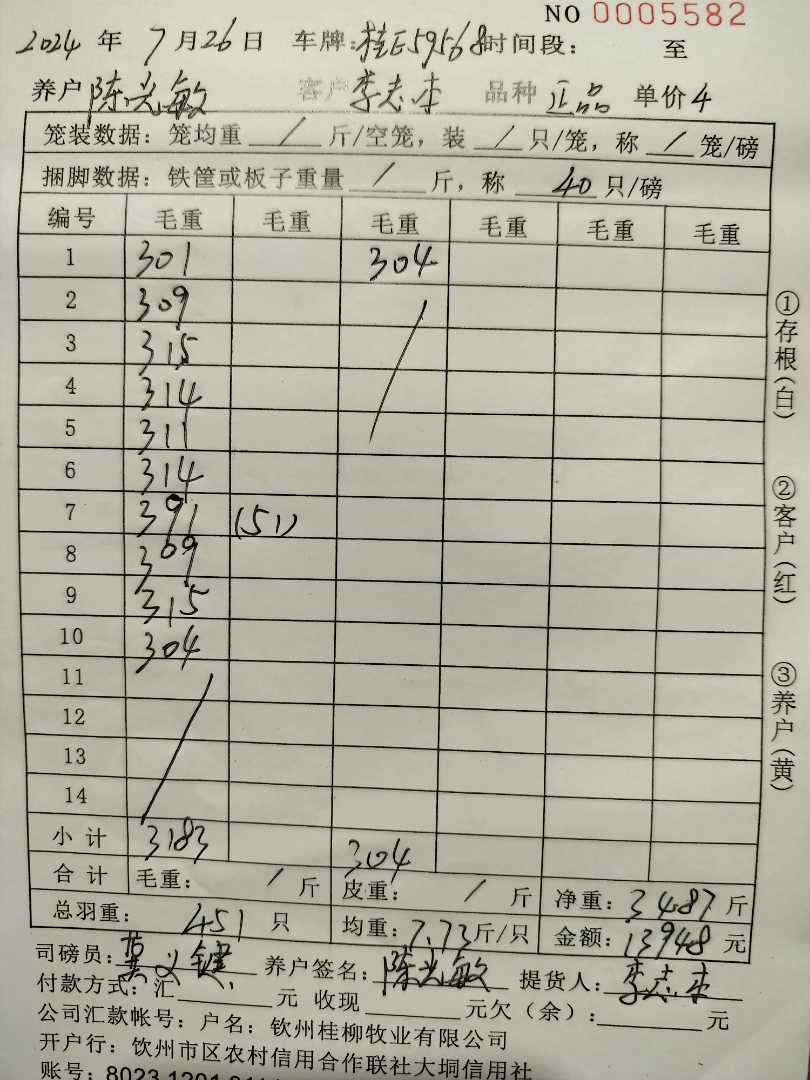 NO 0005582
2024 年 7 月 26 日 车牌:桂E59568时间段: 至
养户 陈光敏 客户 李志本 品种 正品 单价 4
笼装数据:笼均重 / 斤/空笼,装 / 只/笼,称 / 笼/磅
捆脚数据:铁筐或板子重量 / 斤,称 40 只/磅
编号 毛重 毛重 毛重 毛重 毛重 毛重
1 301 304
2 309
3 315
4 314
5 311
6 314
7 391 (51)
8 309
9 315
10 304
11
12
13
14
小计 3183 304
合计 毛重: / 斤 皮重: / 斤 净重: 3487 斤
总羽重: 451 只 均重: 7.73 斤/只 金额: 13948 元
司磅员: 黄义键 养户签名: 陈光敏 提货人: 李志本
付款方式:汇 元 收现 元欠(余): 元
公司汇款帐号:户名:钦州桂柳牧业有限公司
开户行:钦州市区农村信用合作联社大垌信用社
账号:8023 1201
①存根(白)
②客户(红)
③养户(黄)